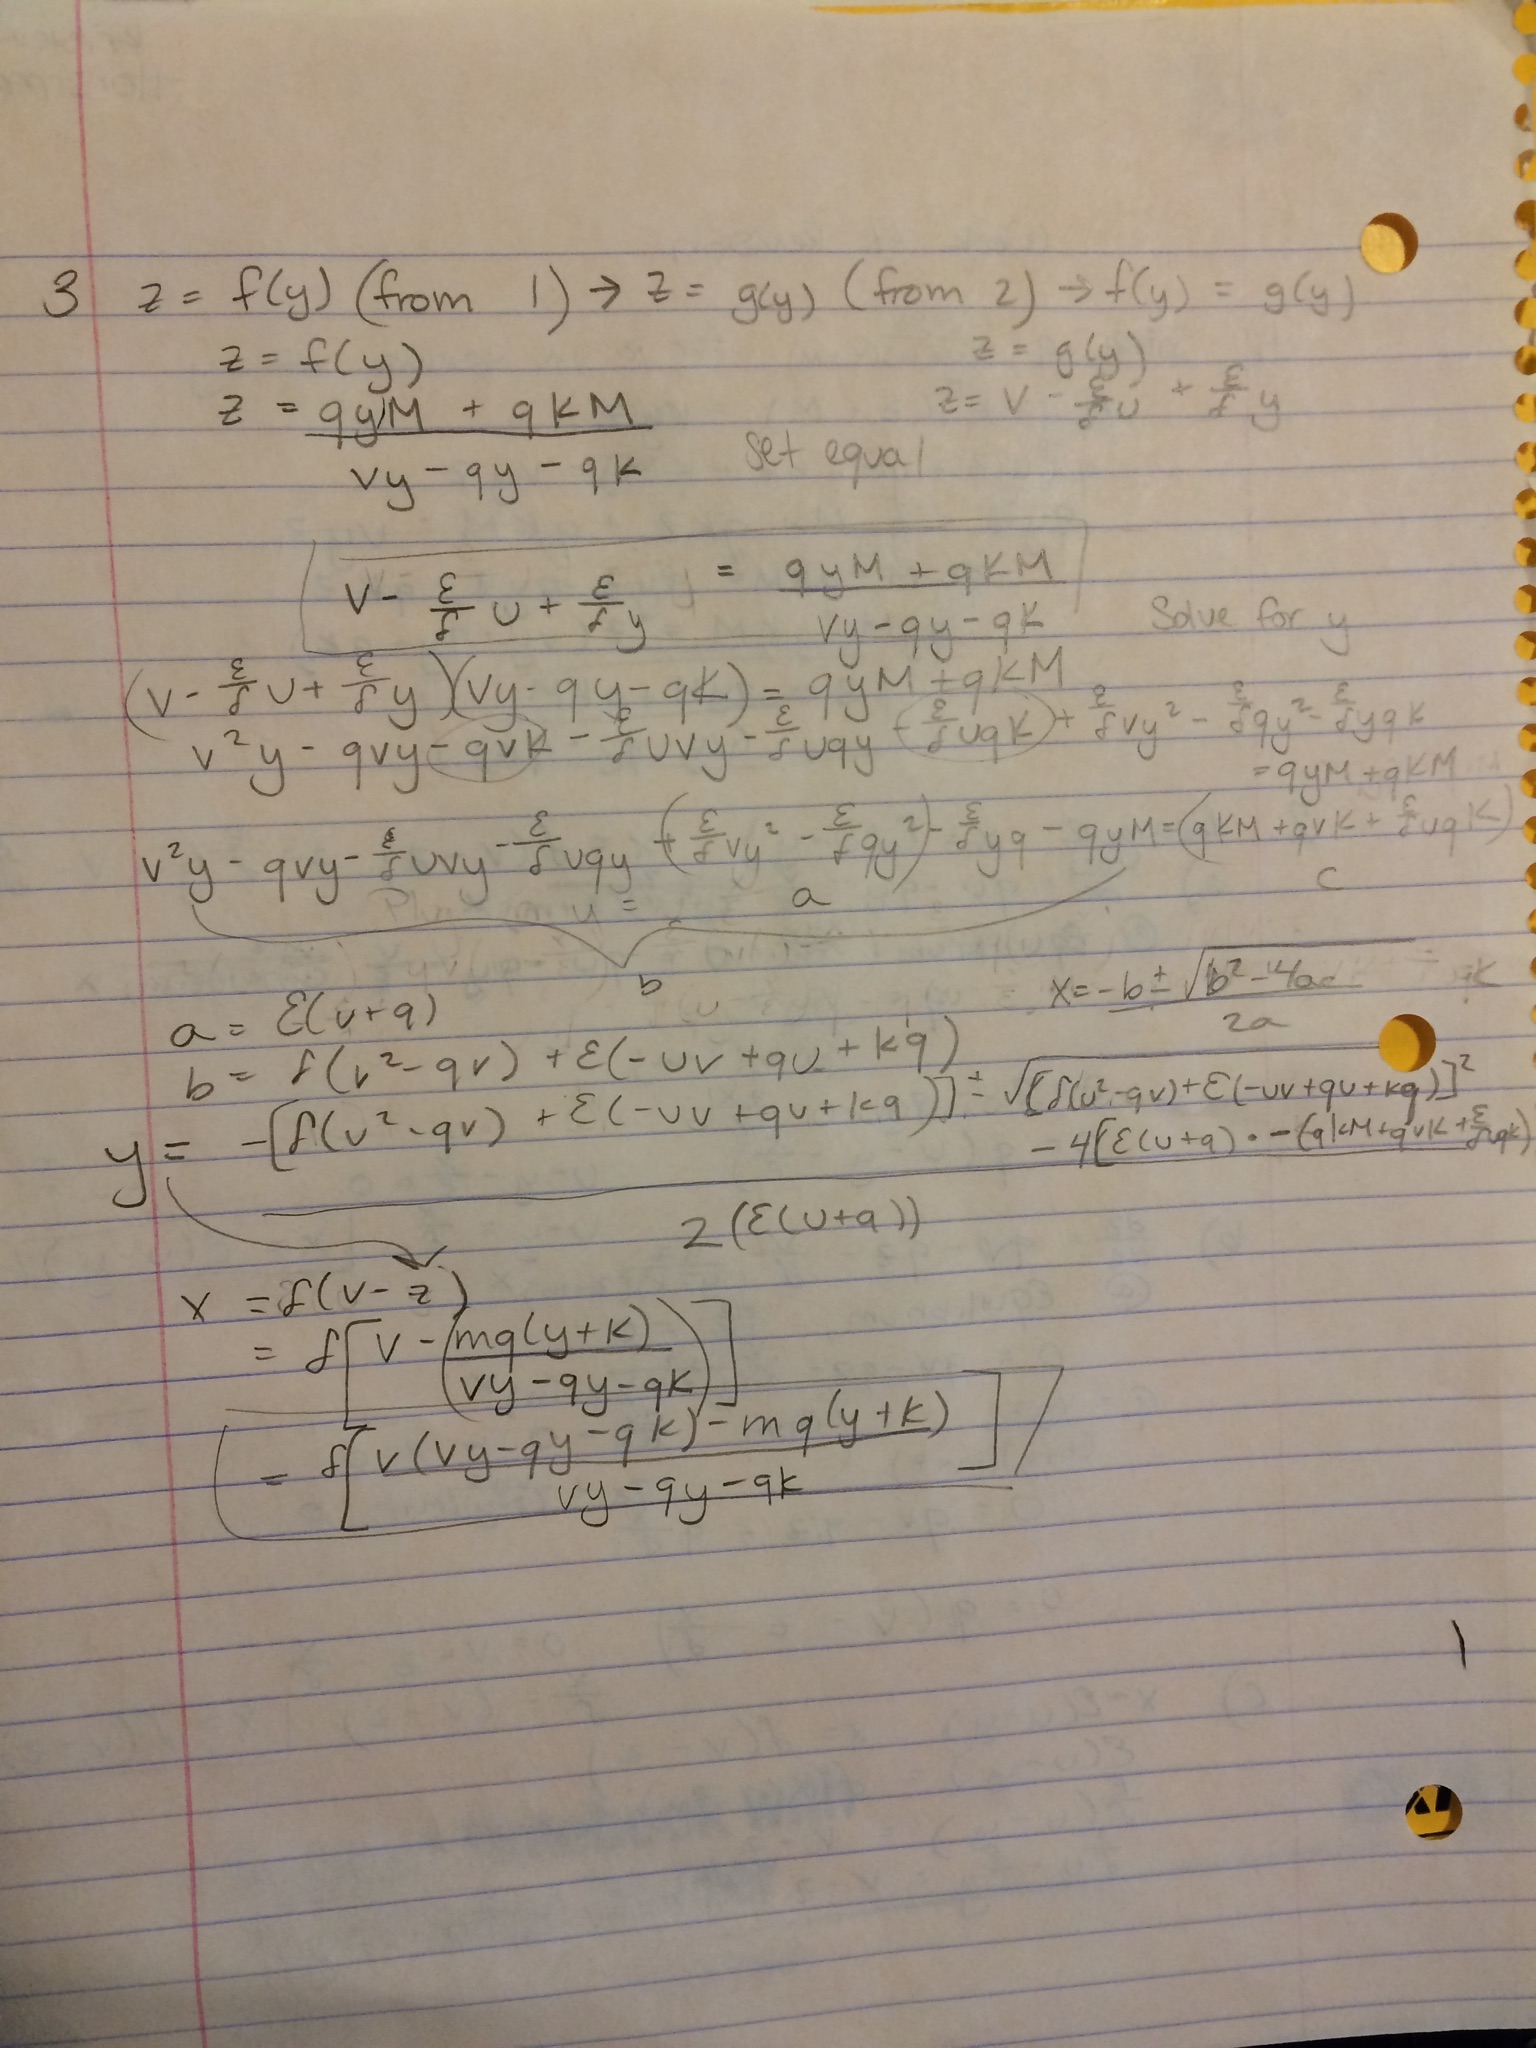 3 z = f(y) (from 1) → z = g(y) (from 2) → f(y) = g(y)
z = f(y)
z = g(y)
z = (qyM + qKM) / (vy - qy - qK)
z = V - ε/δ U + ε/δ y
Set equal
V - ε/δ U + ε/δ y = (qyM + qKM) / (vy - qy - qK)
Solve for y
(V - ε/δ U + ε/δ y)(vy - qy - qK) = qyM + qKM
v²y - qvy - qvK - ε/δ Uvy - ε/δ Uqy - ε/δ UqK + ε/δ vy² - ε/δ qy² - ε/δ yqK
= qyM + qKM
v²y - qvy - ε/δ Uvy - ε/δ Uqy + (ε/δ vy² - ε/δ qy²) - ε/δ yq - qyM = (qKM + qvK + ε/δ UqK)
a
c
b
x = -b ± √(b² - 4ac) / 2a
a = ε(v+q)
b = δ(v² - qv) + ε(-Uv + qU + Kq)
y = -[δ(v² - qv) + ε(-Uv + qU + Kq)] ± √[δ(v² - qv) + ε(-Uv + qU + Kq)]²
- 4[ε(v+q) • -(qKM + qvK + ε/δ UqK)
2(ε(v+q))
x = δ(v - z)
= δ[v - (mq(y+K) / (vy - qy - qK))]
= δ[(v(vy - qy - qK) - mq(y+K)) / (vy - qy - qK)]